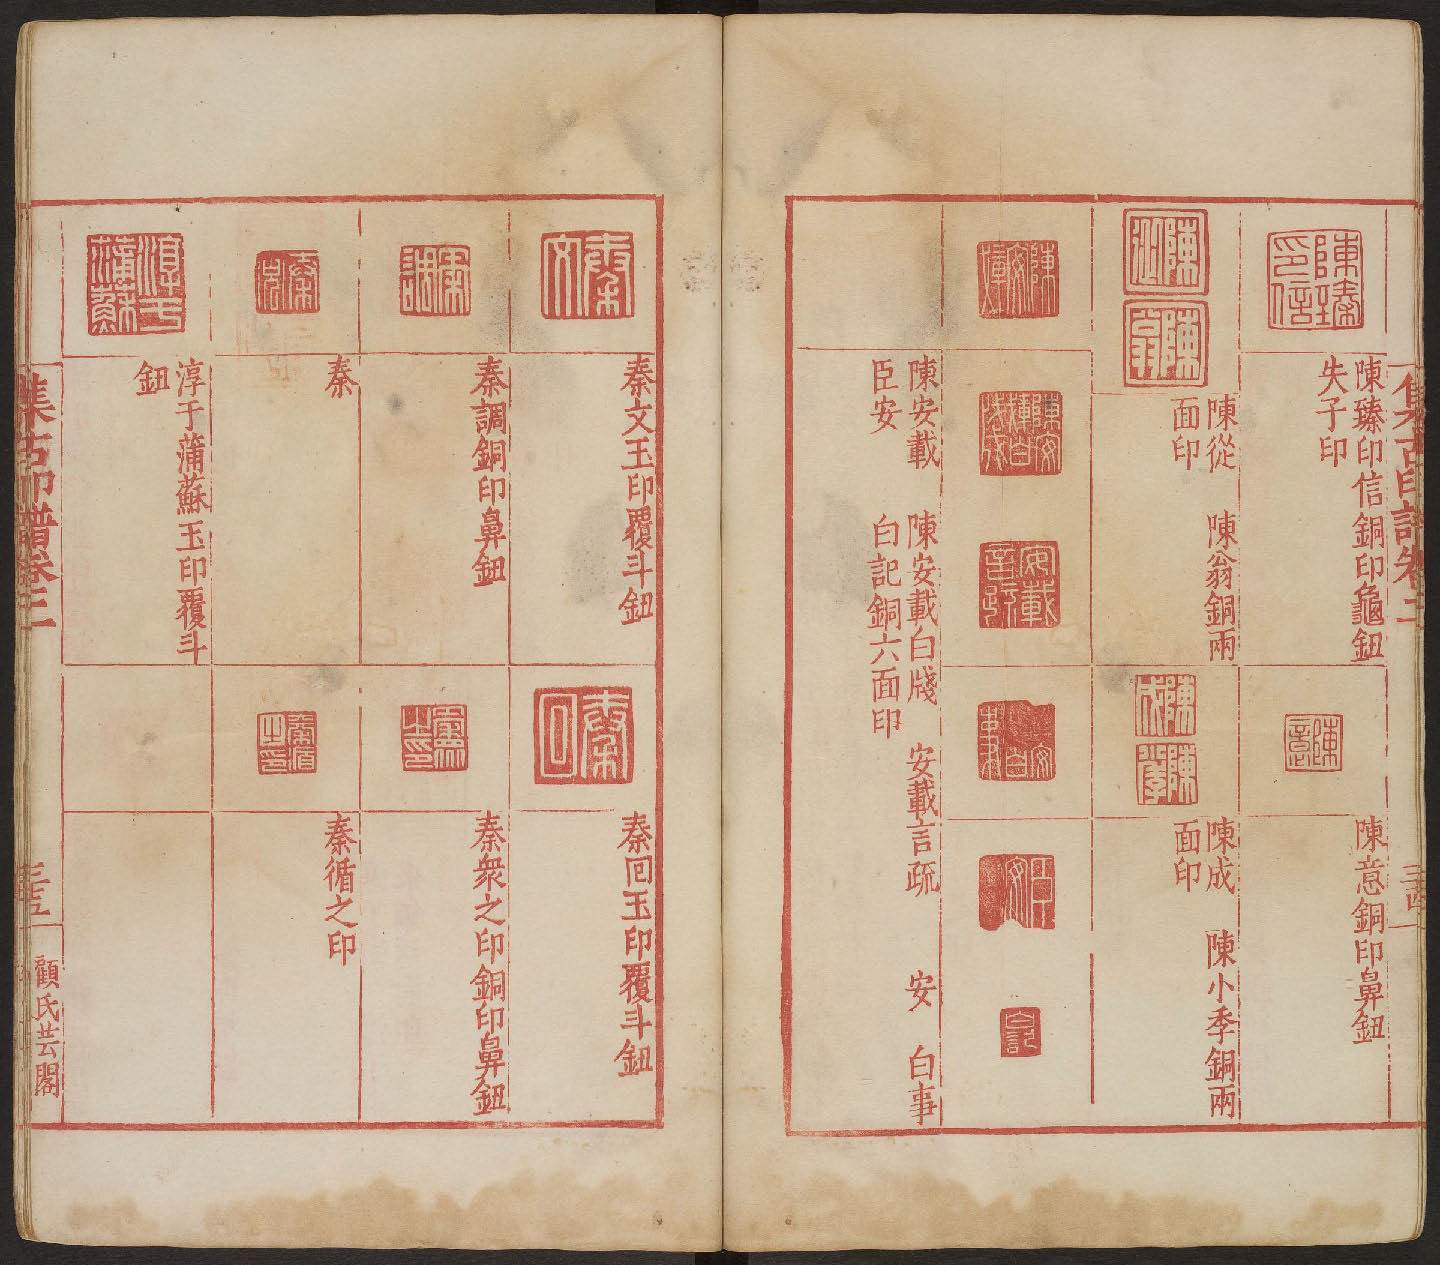 陳臻印信銅印龜鈕
失子印
陳意銅印鼻鈕
陳從　陳翁銅兩
面印
陳成　陳小季銅兩
面印
陳安載　陳安載白牋　安載言疏　安　白事
臣安　白記銅六面印
秦文玉印覆斗鈕
秦回玉印覆斗鈕
秦調銅印鼻鈕
秦衆之印銅印鼻鈕
秦
秦循之印
淳于蒲蘇玉印覆斗
鈕
集古印譜卷三
三五
顧氏芸閣